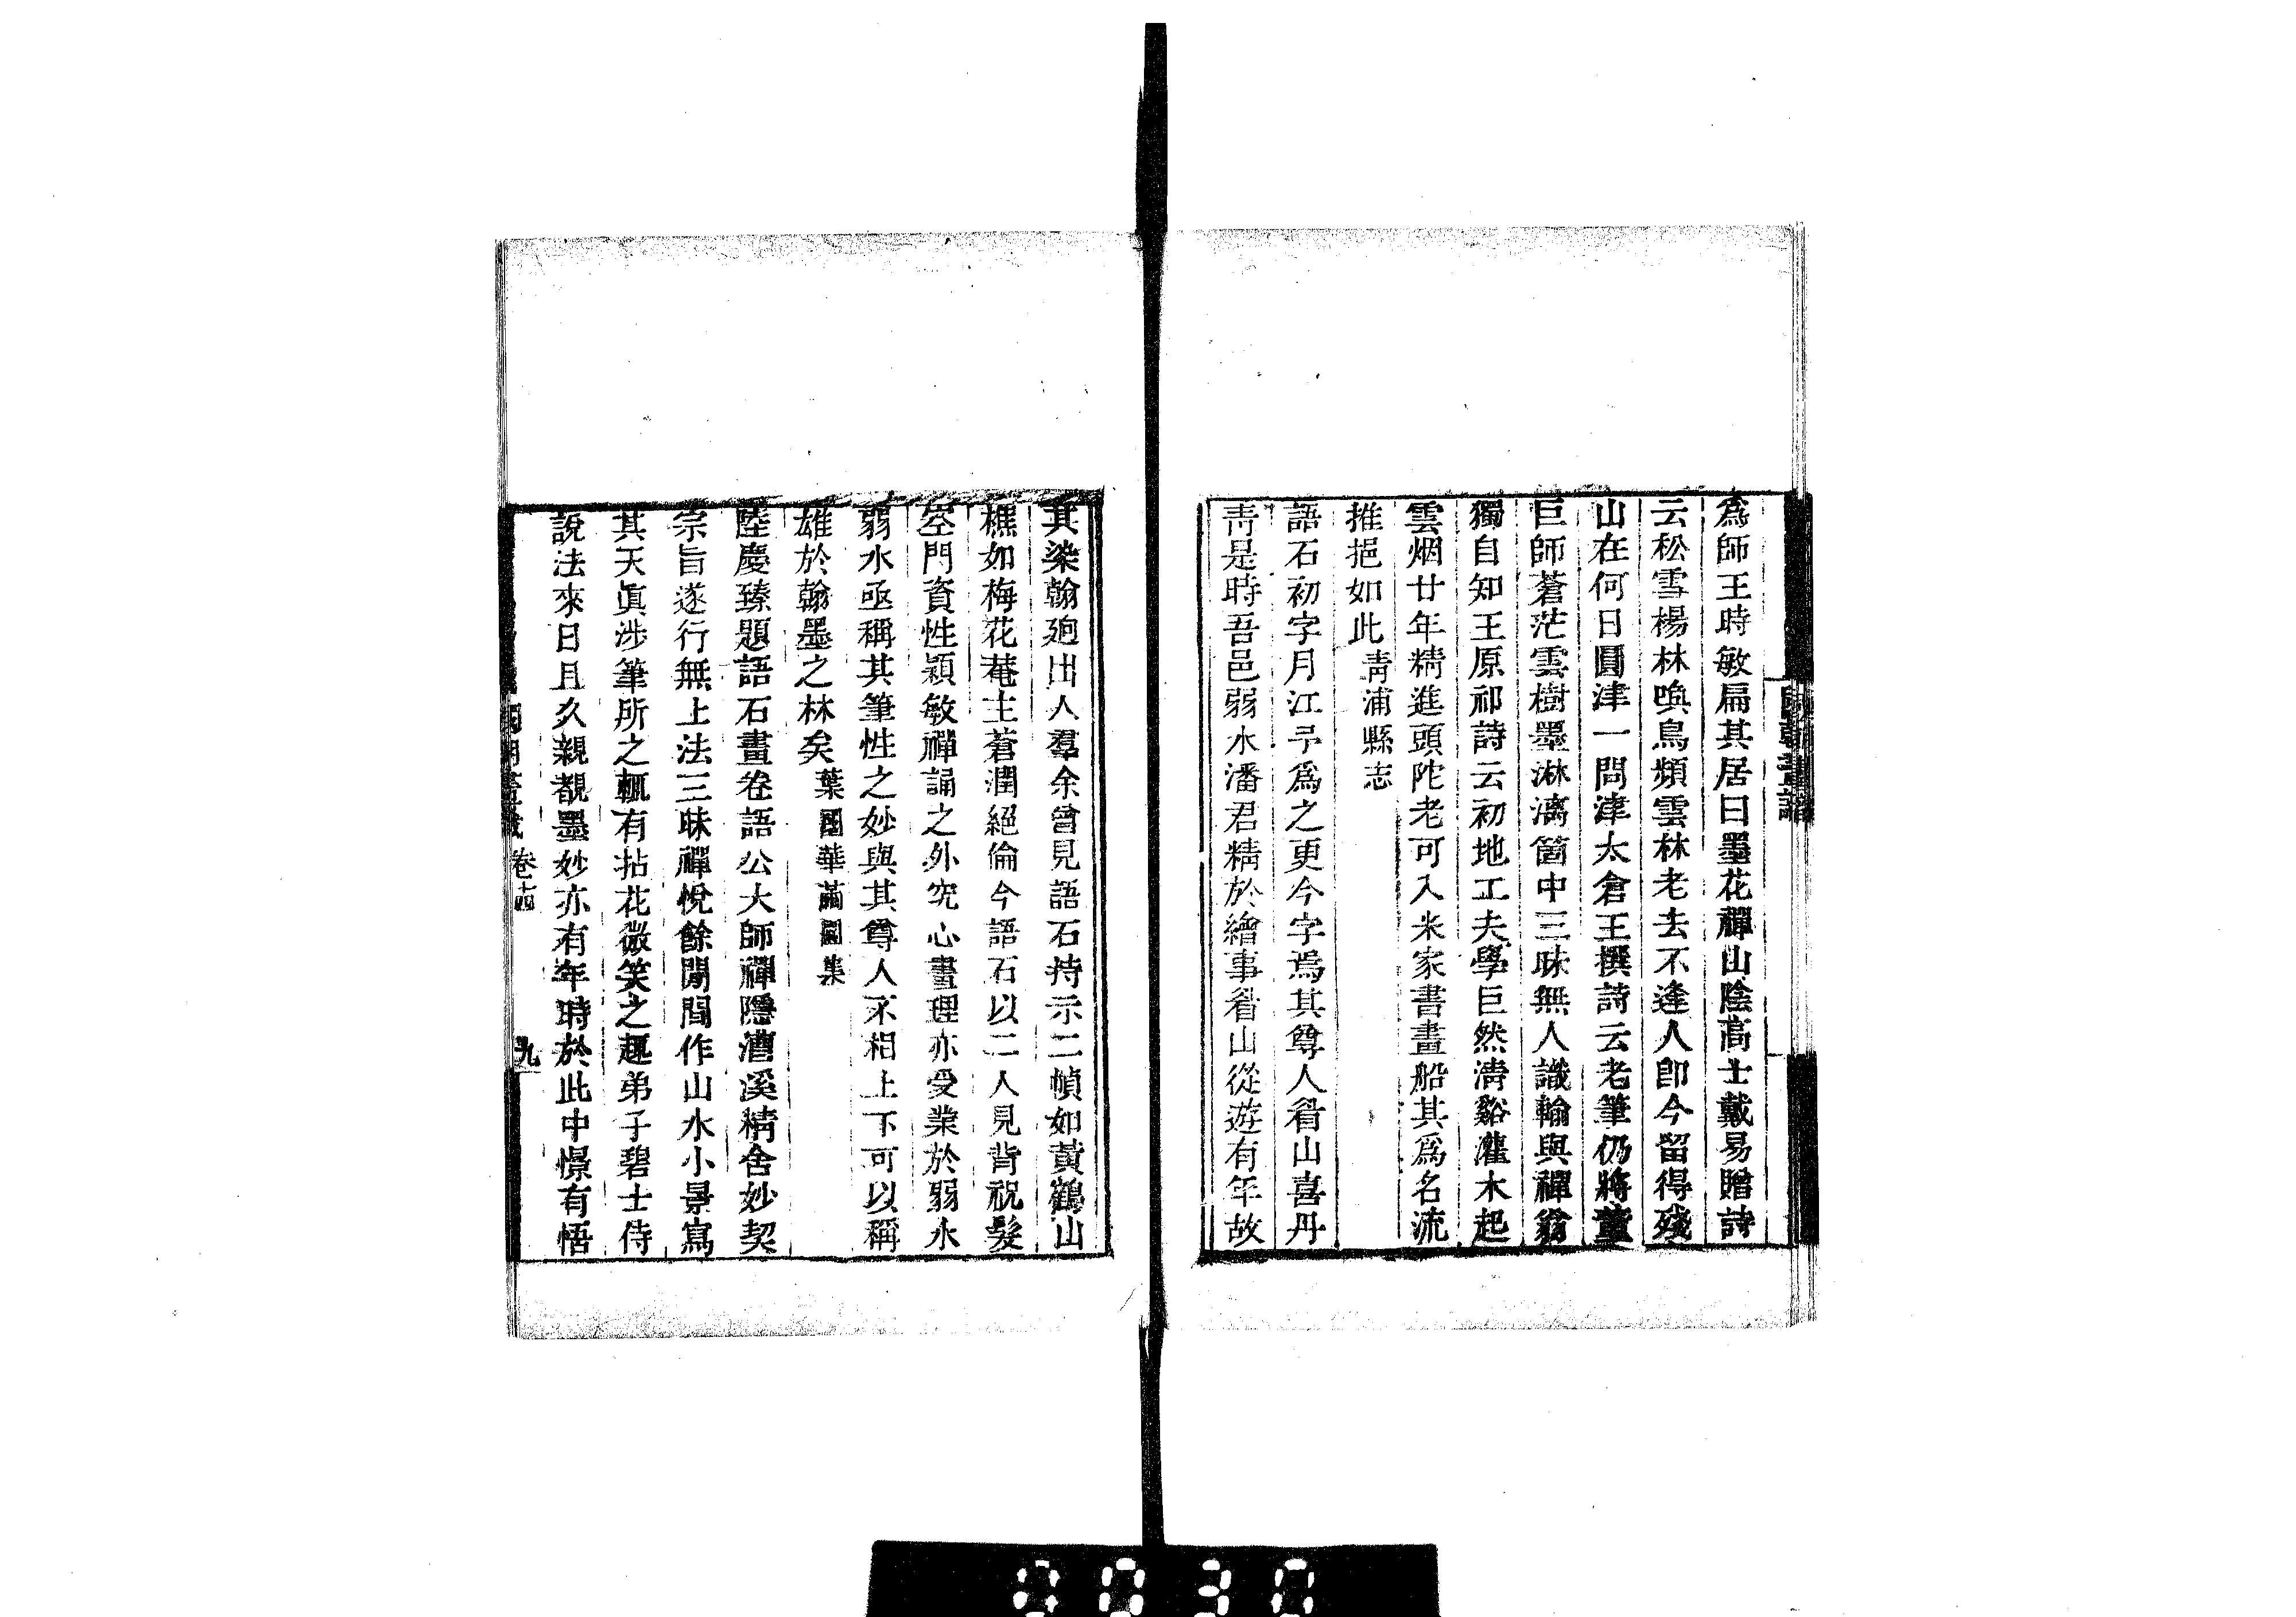 爲師王時敏扁其居曰墨花禪山陰高士戴易贈詩
云松雪楊林喚鳥頻雲林老去不逢人卽今留得殘
山在何日圓津一問津太倉王撰詩云老筆仍將董
巨師蒼茫雲樹墨淋漓箇中三昧無人識輸與禪翁
獨自知王原祁詩云初地工夫學巨然淸谿灌木起
雲烟廿年精進頭陀老可入米家書畫船其爲名流
推挹如此靑浦縣志
語石初字月江予爲之更今字焉其尊人眢山喜丹
靑是時吾邑弱水潘君精於繪事眢山從遊有年故
其染翰廻出人羣余曾見語石持示二幀如黃鶴山
樵如梅花菴主蒼潤絕倫今語石以二人見背祝髮
空門資性穎敏禪誦之外究心畫理亦受業於弱水
弱水亟稱其筆性之妙與其尊人不相上下可以稱
雄於翰墨之林矣葉國華繭園集
陸慶臻題語石畫卷語公大師禪隱漕溪精舍妙契
宗旨遂行無上法三昧禪悅餘閒間作山水小景寫
其天眞涉筆所之輒有拈花微笑之趣弟子碧士侍
說法來日且久親覩墨妙亦有年時於此中憬有悟
卷十四
九
0030